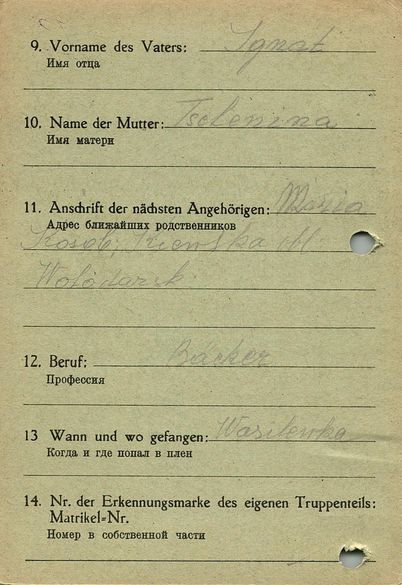 9. Vorname des Vaters: Ignat
Имя отца
10. Name der Mutter:
Имя матери
11. Anschrift der nächsten Angehörigen: Maria
Адрес ближайших родственников
12. Beruf: Bäcker
Профессия
13 Wann und wo gefangen: Wasilewka
Когда и где попал в плен
14. Nr. der Erkennungsmarke des eigenen Truppenteils:
Matrikel-Nr.
Номер в собственной части